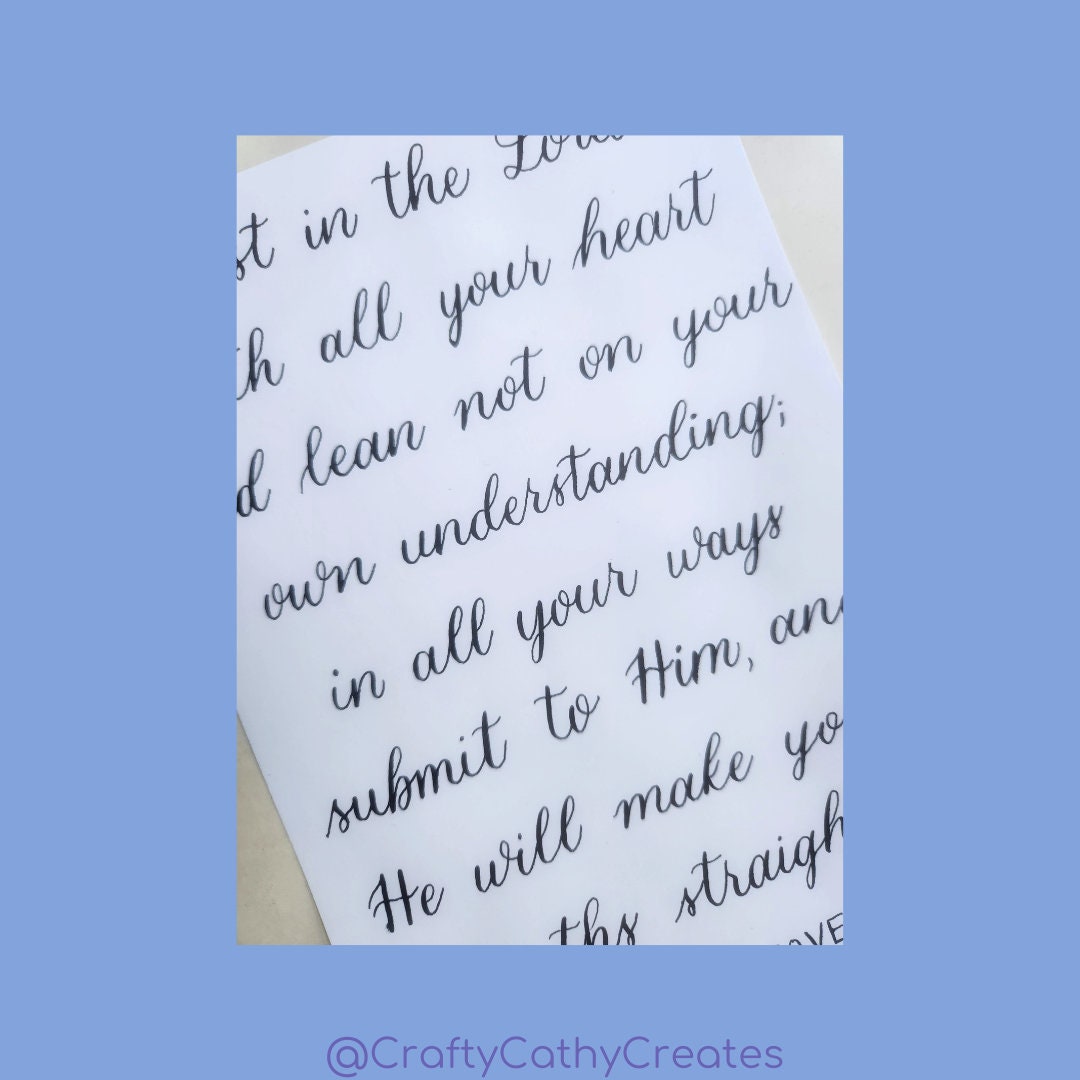 st in the Lord
th all your heart
d lean not on your
own understanding;
in all your ways
submit to Him, and
He will make yo
ths straigh
OVE
@CraftyCathyCreates